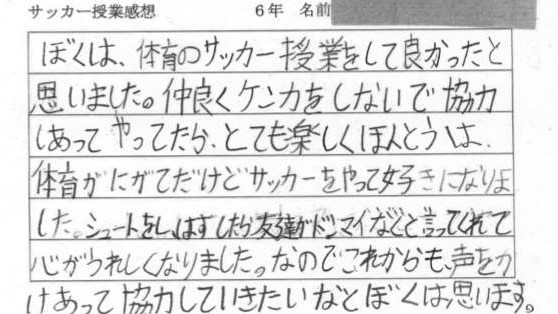 サッカー授業感想 6年 名前
ぼくは、体育のサッカー授業をして良かったと
思いました。仲良くケンカをしないで協力
しあってやってたら、とても楽しくほんとうは、
体育がにがてだけどサッカーをやって好きになりま
した。シュートをし、はずしたら友達がドンマイなどと言ってくれて
心がうれしくなりました。なのでこれからも、声をか
けあって協力していきたいなとぼくは思います。